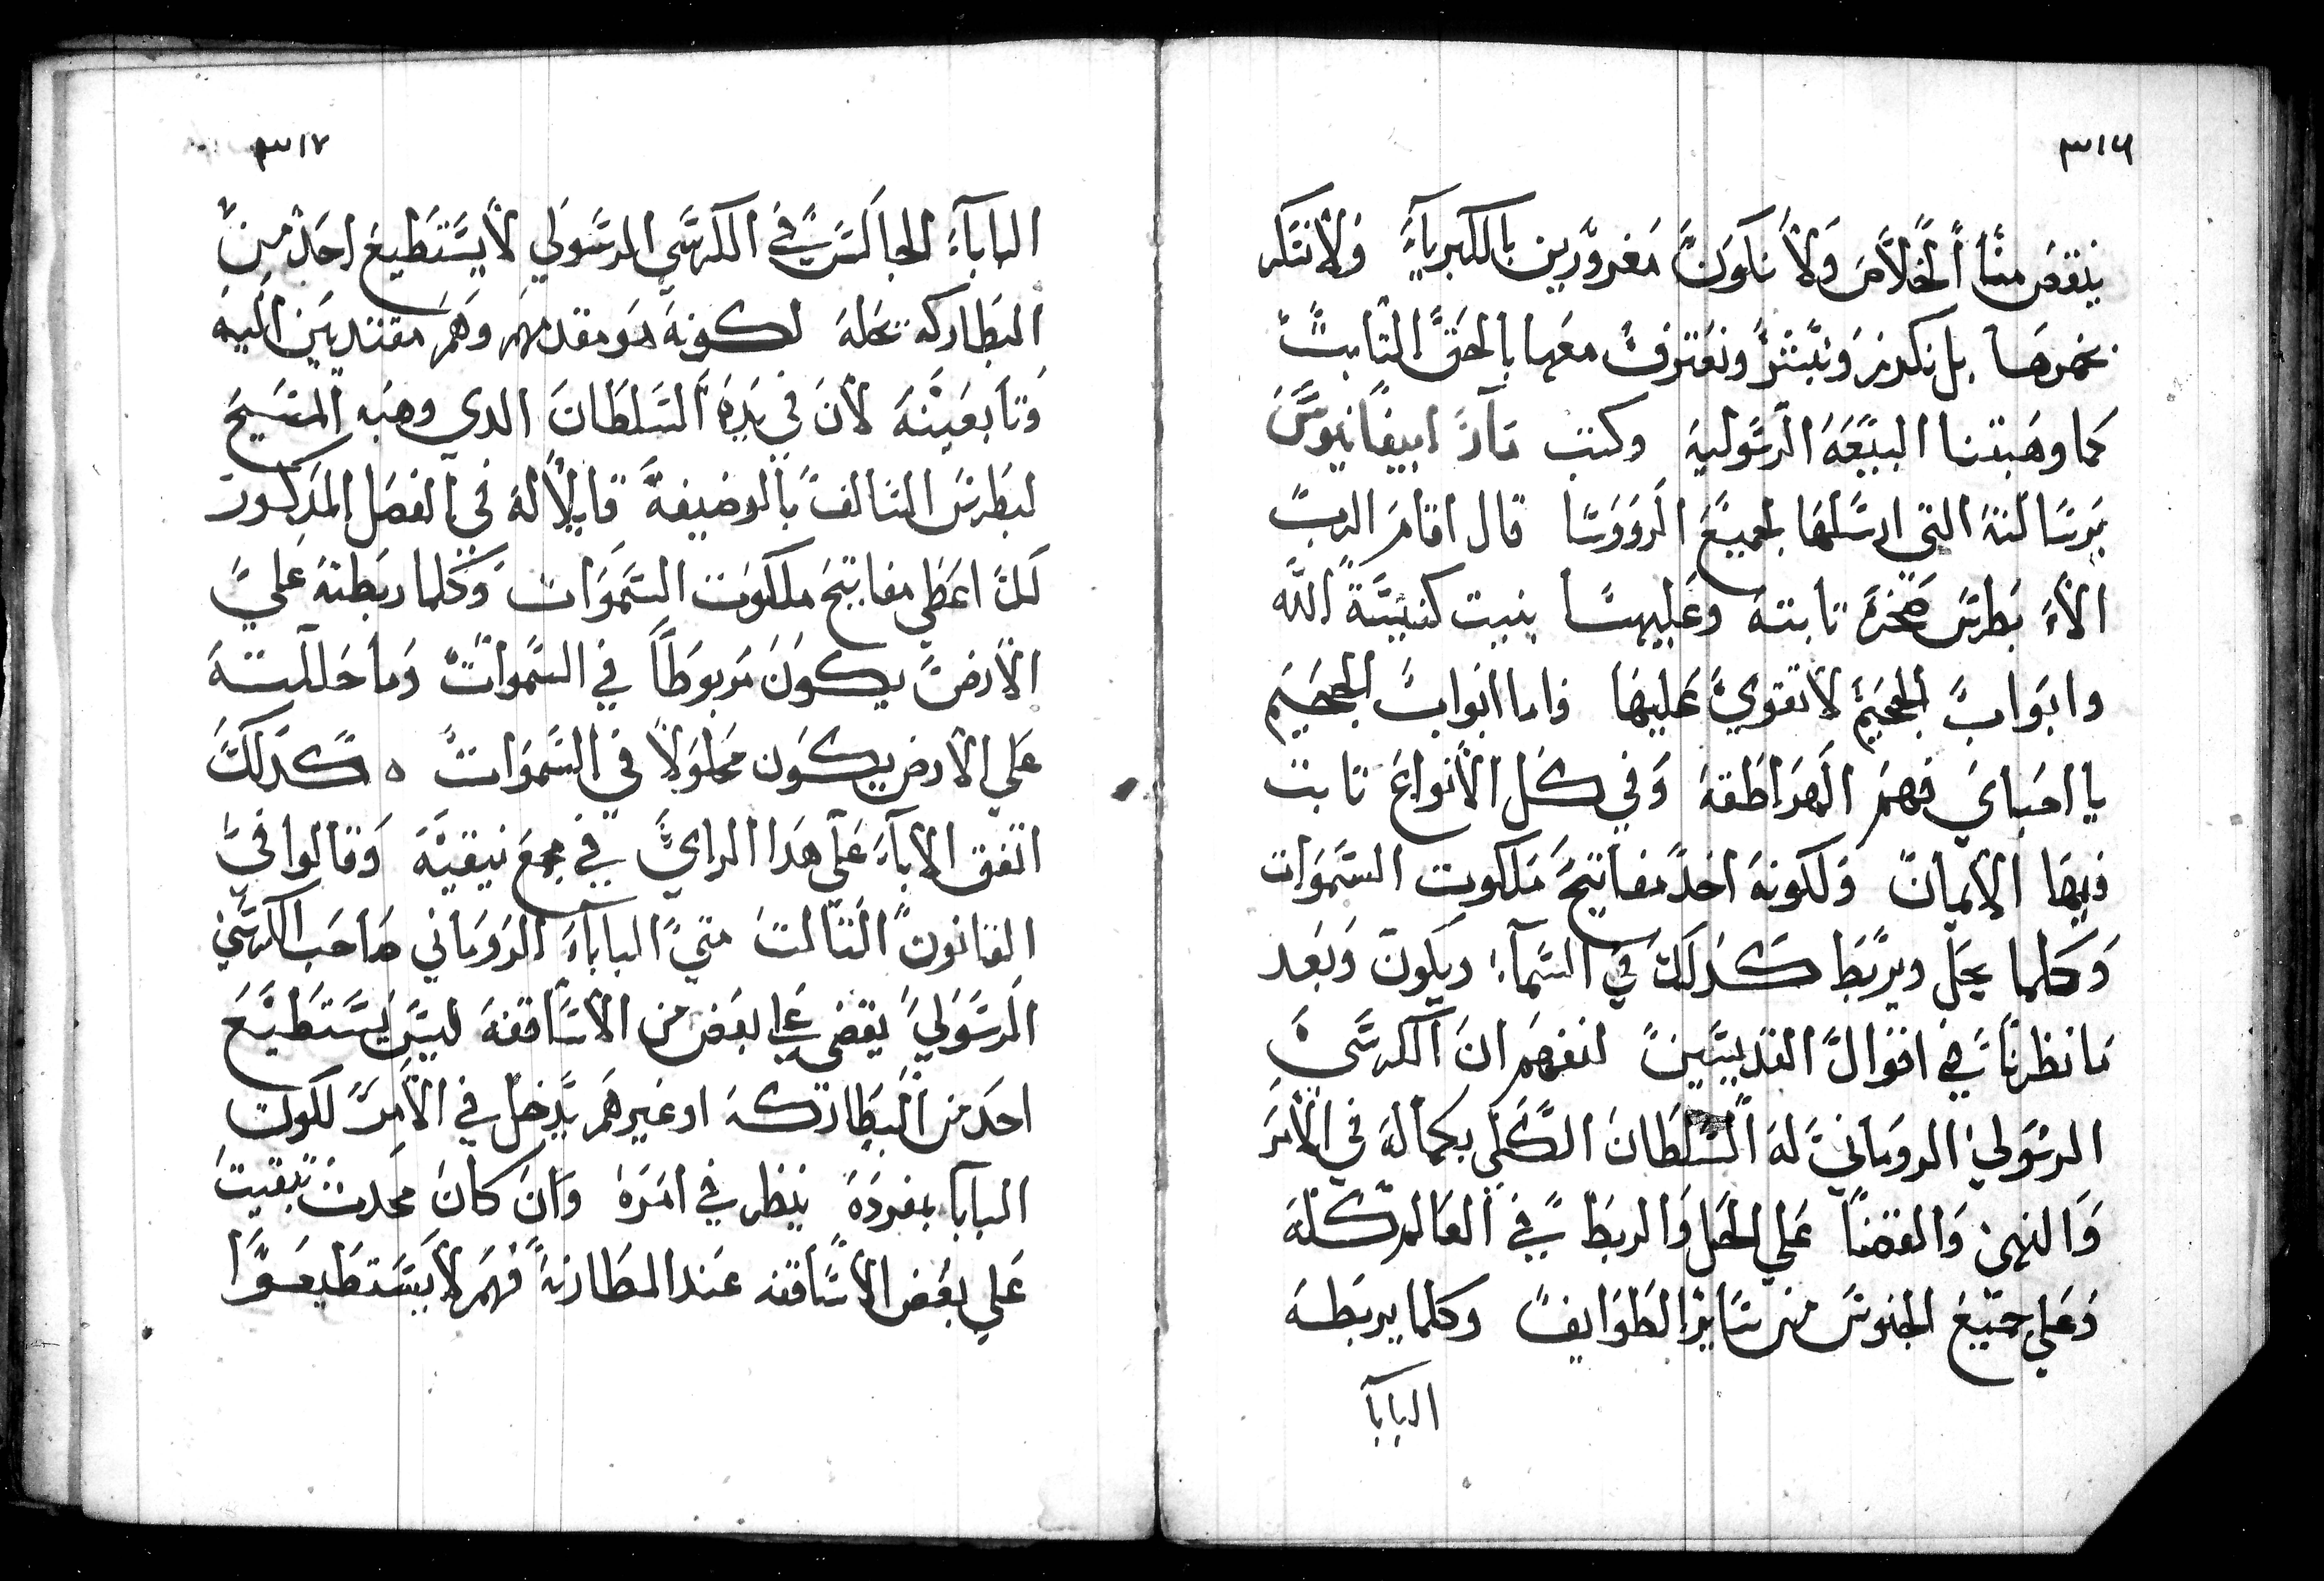 ٣١٦
ينقص منا الخلاص ولا نكون مغرورين بالكبرياء ولا نتكر
بل نكرز ونبشر ونعترف معها بالحق الثابت
كما وهبتنا البيعة الرسولية وكتب مار ابيفانيوس
برسالته التي ارسلها لجميع الرووسا قال اقام الرب
الاله بطرس صخرة تابتة وعليها بنيت كنيسة الله
وابواب الجحيم لا تقوي عليها واما ابواب الجحيم
يا احباي فهم الهراطقة وفي كل الانواع تابت
فيها الايمان ولكونه اخد مفاتيح ملكوت السموات
وكلما يحل ويربط كدلك في السماء ويكون وبعد
ما نظرنا في اقوال القديسين لنفهم ان الكرسي
الرسولي الروماني له السلطان الكلي بكماله في الامر
والنهي والقضا علي الحل والربط في العالم كله
وعلي جميع الجنوس من ساير الطوايف وكلما يربطه
البابا
٣١٧
البابآء الجالس في الكرسي الرسولي لا يستطيع احد من
البطاركه تحله لكونه هو مقدمهم وهم مقتديين اليه
وتابعينه لان في يده السلطان الدي وهبه المسيح
لبطرس التالف بالوضيفة قايلا له في الفصل المدكور
لك اعطي مفاتيح ملكوت السموات وكلما ربطته علي
الارض يكون مربوطا في السموات وما حللته
علي الارض يكون محلولا في السموات ٥ كدلك
اتفق الاباء علي هدا الراي في مجمع نيقية وقالوا في
القانون التالت متي الباباء الروماني صاحب الكرسي
الرسولي يقضي علي بعض من الاساقفه ليس يستطيع
احد من البطاركه او غيرهم يدخل في الامر لكون
البابا بمفرده ينظر في امره وان كان محدث تبقيت
علي بعض الاساقفه عند المطارنه فهم لا يستطيعوا